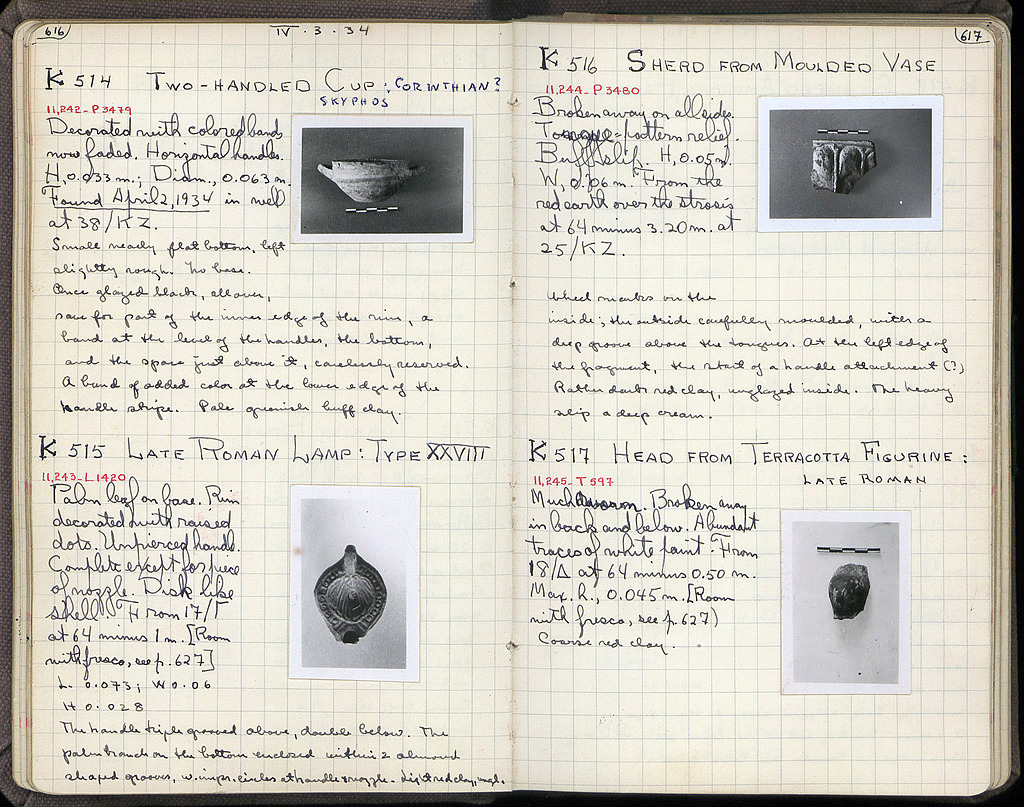 616
IV · 3 · 34
K 514 TWO-HANDLED CUP : CORINTHIAN?
SKYPHOS
11,242 - P 3479
Decorated with colored bands
now faded. Horizontal handles.
H, 0.033 m.; Diam., 0.063 m.
Found April 2, 1934 in well
at 38/KZ.
Small nearly flat bottom, left
slightly rough. No base.
Once glazed black, allover,
save for part of the inner edge of the rim, a
band at the level of the handles, the bottom,
and the space just above it, carelessly reserved.
A band of added color at the lower edge of the
handle stripe. Pale greenish buff clay.
K 515 LATE ROMAN LAMP : TYPE XXVIII
11,243 - L 1420
Palm leaf on base. Rim
decorated with raised
dots. Unpierced handle.
Complete except for piece
of nozzle. Disk like
shell. From 17/Γ
at 64 minus 1 m. [Room
with fresco, see p. 627]
L. 0.073; W 0.06
H 0.028
The handle triple grooved above, double below. The
palm branch on the bottom enclosed within 2 almond
shaped grooves, w. impr. circles at handle & nozzle. Light red clay, ungl.
617
K 516 SHERD FROM MOULDED VASE
11,244 - P 3480
Broken away on all sides.
Tongue-pattern relief.
Buff slip. H, 0.05 m.
W, 0.06 m. From the
red earth over the strosis
at 64 minus 3.20 m. at
25/KZ.
Wheel marks on the
inside; the outside carefully moulded, with a
deep groove above the tongues. At the left edge of
the fragment, the start of a handle attachment (?)
Rather dark red clay, unglazed inside. The heavy
slip a deep cream.
K 517 HEAD FROM TERRACOTTA FIGURINE :
LATE ROMAN
11,245 - T 597
Much worn. Broken away
in back and below. Abundant
traces of white paint. From
18/Δ at 64 minus 0.50 m.
Max. h., 0.045 m. [Room
with fresco, see p. 627)
Coarse red clay.